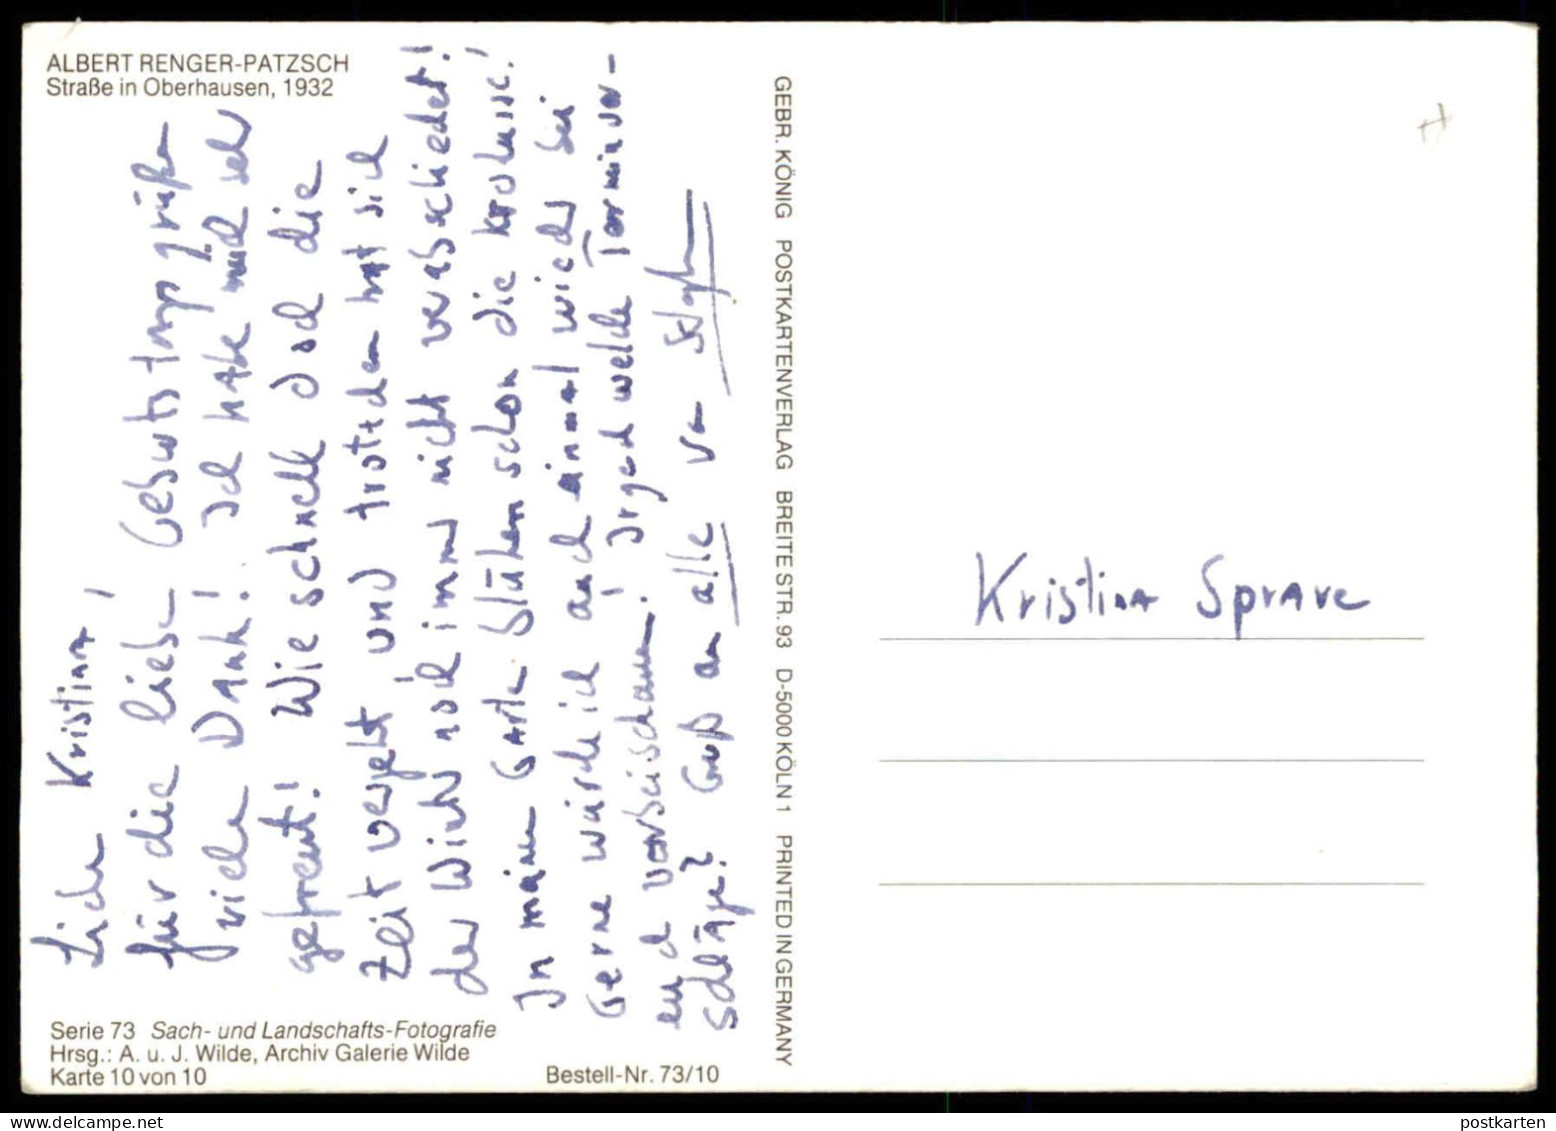 ALBERT RENGER-PATZSCH
Straße in Oberhausen, 1932
Liebe Kristina!
für die lieben Geburtstagsgrüße
vielen Dank! Ich habe mich sehr
gefreut! Wie schnell doch die
Zeit vergeht und trotzdem hat sich
der Winter noch immer nicht verabschiedet!
In meinem Garten blühen schon die Krokusse!
Gerne würde ich auch einmal wieder bei
euch vorbeischauen! Irgendwelche Terminvor-
schläge? Gruß an alle von
Serie 73 Sach- und Landschafts-Fotografie
Hrsg.: A. u. J. Wilde, Archiv Galerie Wilde
Karte 10 von 10
Bestell-Nr. 73/10
GEBR. KÖNIG POSTKARTENVERLAG BREITE STR. 93 D-5000 KÖLN 1 PRINTED IN GERMANY
Kristina Sprave
postkarten